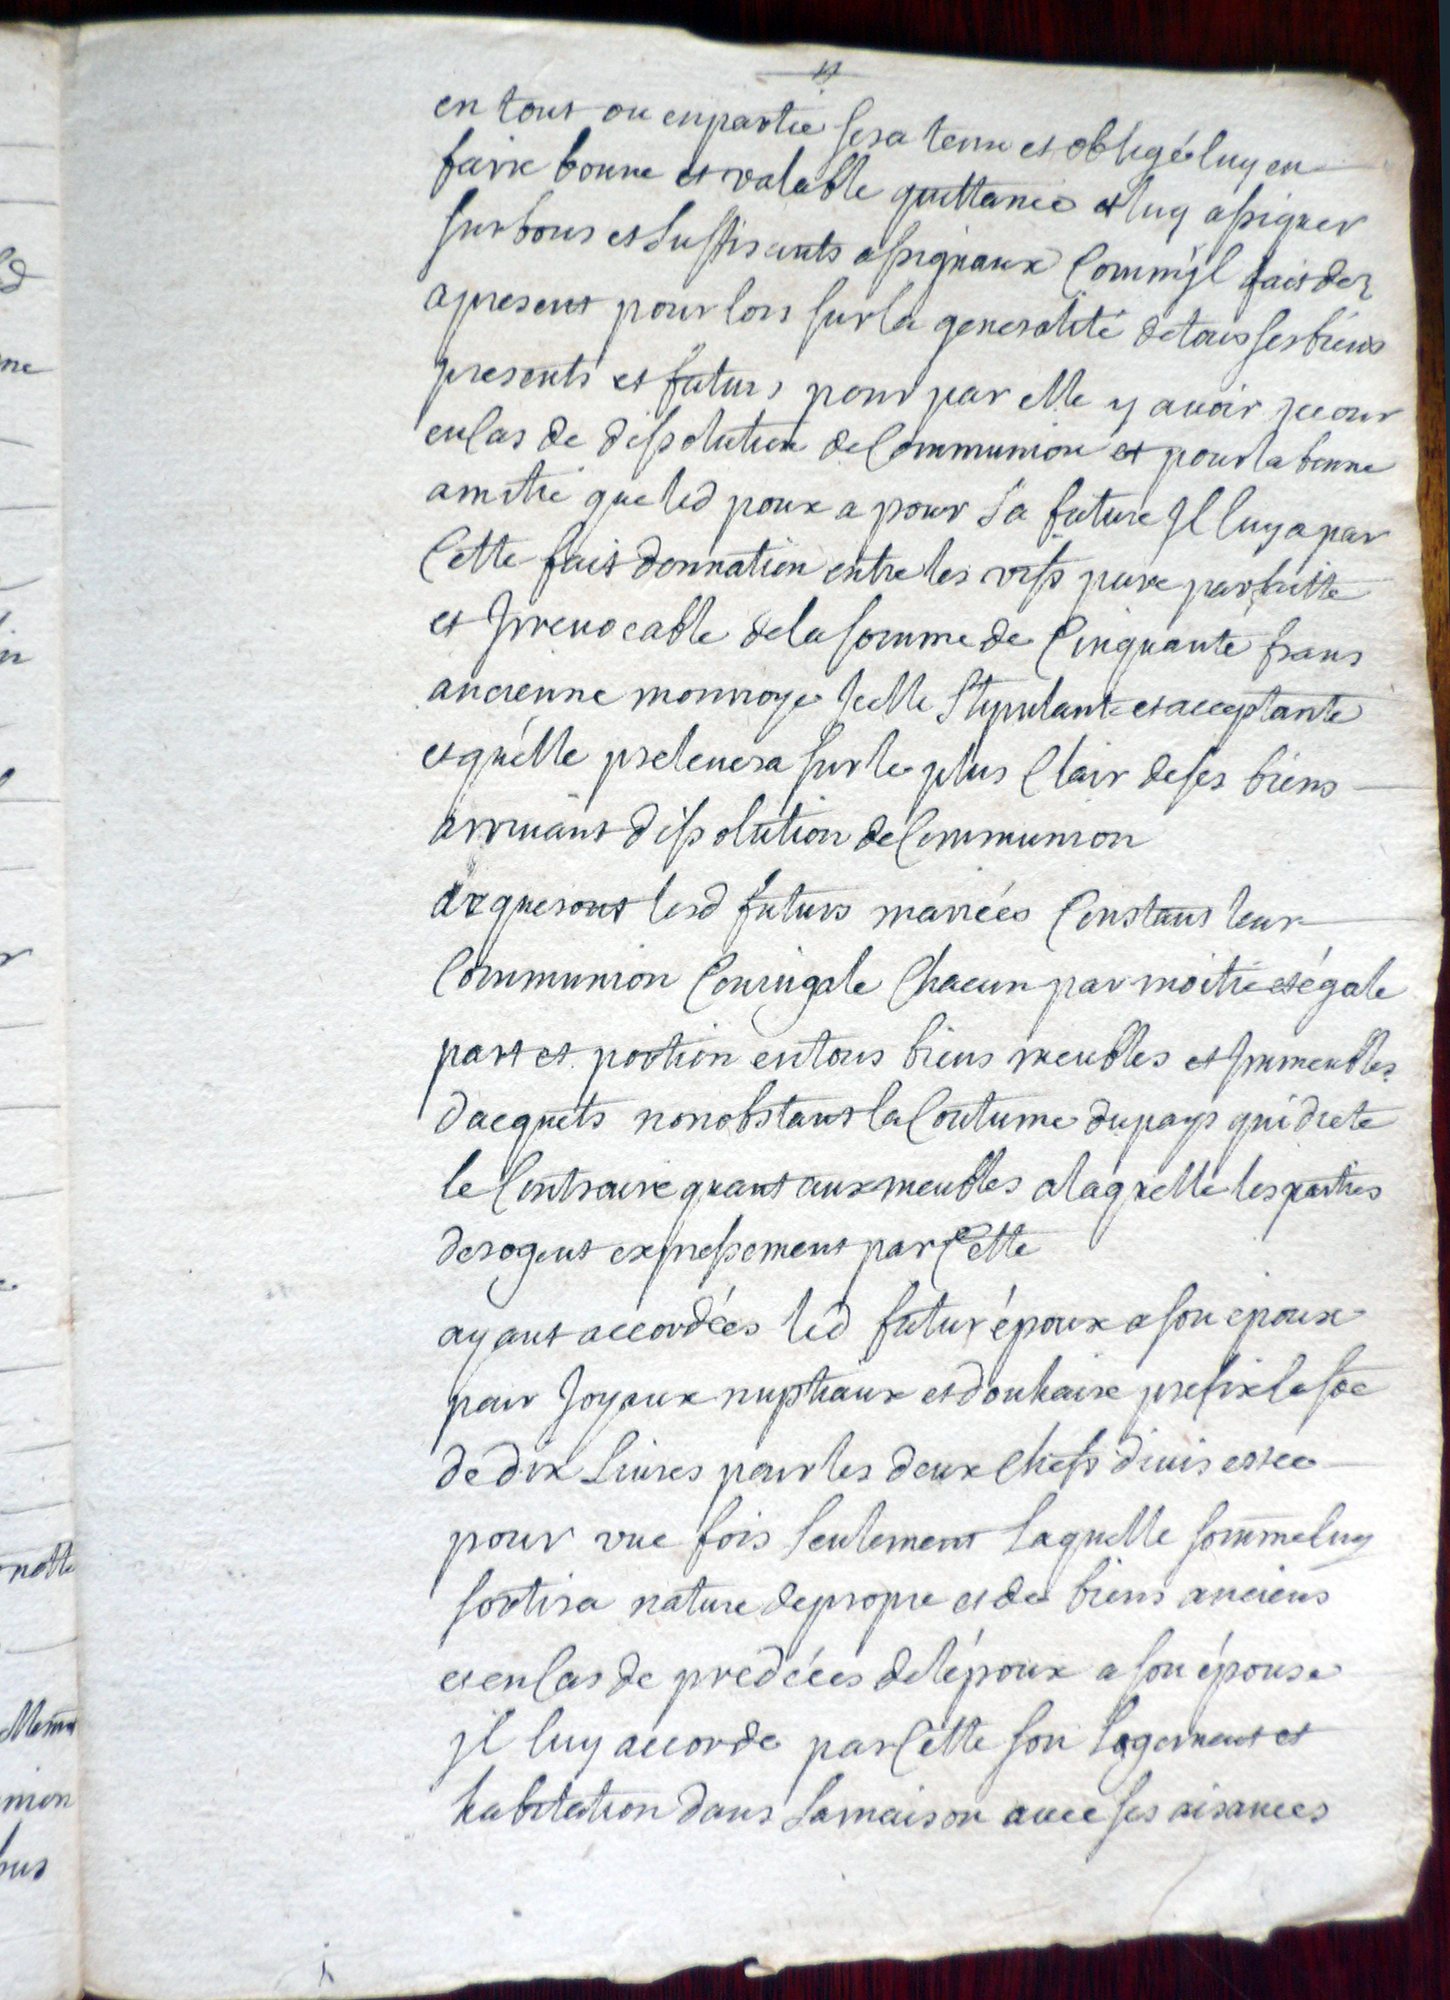 en tout ou enpartie sera tenu et obligé luy en
faire bonne et valable quittance et luy assigner
sur bons et suffisants assignaux comm'jl fait dez
apresent pour lors sur la generalité de tous ses biens
presents et futurs pour par elle y avoir recour
en cas de dissolution de Communion et pour la bonne
amitié que led poux a pour sa future Jl luy a par
Cette fait donnation entre les vifs pure parfaitte
et Jrrevocable de la somme de Cinquante frans
ancienne monnoye Jcelle Stipulante et acceptante
et qu'élle prelevera sur le plus Clair de ses biens
arrivant dissolution de Communion
acqueront lesd futurs mariées Constant leur
Communion Conjugale Chacun par moitié et égale
part et portion en tous biens meubles et Jmmeubles
d'acquets nonobstant la Coutume du pays qui dicte
le Contraire quant aux meubles a laquelle les parties
derogent expressement par Cette
ayant accordées led futur époux a son epoux
pour Joyaux nuptiaux et douhaire prefix la soe
de dix Livres pour les deux Chefs divis et ce
pour vne fois seulement Laquelle somme luy
sortira nature de propre et de biens anciens
et en Cas de predécés de l'époux a son épouse
jl luy accorde par Cette son Logement et
habitation dans sa maison avec ses aisances